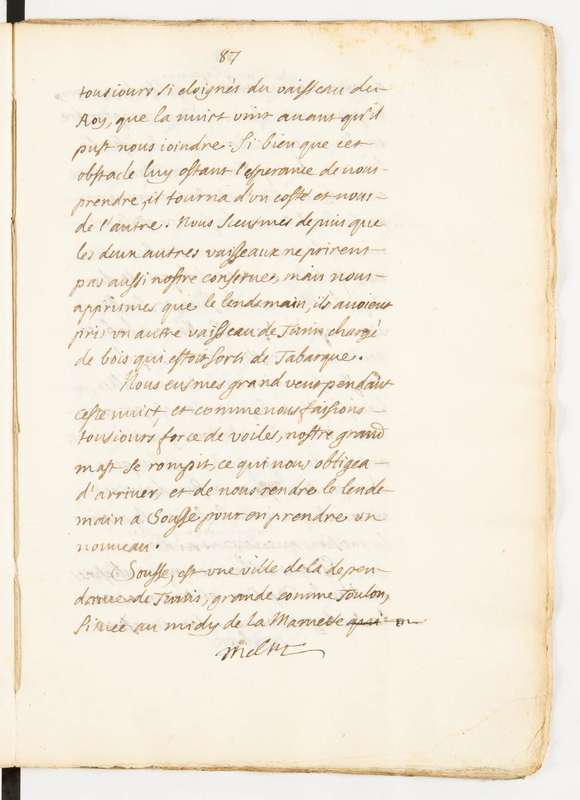 87
tousiours si eloignés du vaisseau du
Roy, que la nuict vint auant qu'il
pust nous ioindre. Si bien que cet
obstacle luy ostant l'esperance de nous
prendre, il tourna d'un costé et nous
de l'autre. Nous sceusmes depuis que
les deux autres vaisseaux ne prirent
pas aussi nostre conserue, mais nous
apprismes que le lendemain, ils auoient
pris vn autre vaisseau de Tunis chargé
de bois qui estoit sorti de Tabarque.
Nous eusmes grand vent pendant
ceste nuict, et comme nous faisions
tousiours force de voiles, nostre grand
mast se rompit, ce qui nous obligea
d'arriuer, et de nous rendre le lende
main a Sousse pour en prendre un
nouueau.
Sousse, est vne ville de la depen
dance de Tunis, grande comme Toulon,
Située au midy de la